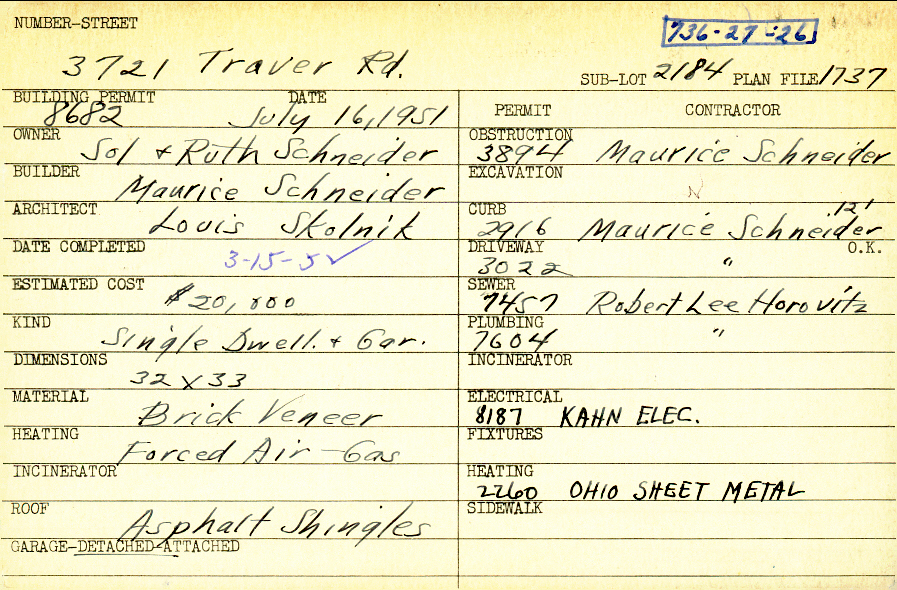 NUMBER-STREET
736-27-26
3721 Traver Rd.
SUB-LOT 2184 PLAN FILE 1737
BUILDING PERMIT DATE
8682 July 16, 1951
OWNER
Sol + Ruth Schneider
BUILDER
Maurice Schneider
ARCHITECT
Louis Skolnik
DATE COMPLETED
3-15-5
ESTIMATED COST
$20,000
KIND
Single Dwell. + Gar.
DIMENSIONS
32 x 33
MATERIAL
Brick Veneer
HEATING
Forced Air-Gas
INCINERATOR
ROOF
Asphalt Shingles
GARAGE-DETACHED-ATTACHED
PERMIT CONTRACTOR
OBSTRUCTION
3894 Maurice Schneider
EXCAVATION
N
CURB 12'
2916 Maurice Schneider
DRIVEWAY O.K.
3022 "
SEWER
7457 Robert Lee Horovitz
PLUMBING
7604 "
INCINERATOR
ELECTRICAL
8187 KAHN ELEC.
FIXTURES
HEATING
2260 OHIO SHEET METAL
SIDEWALK